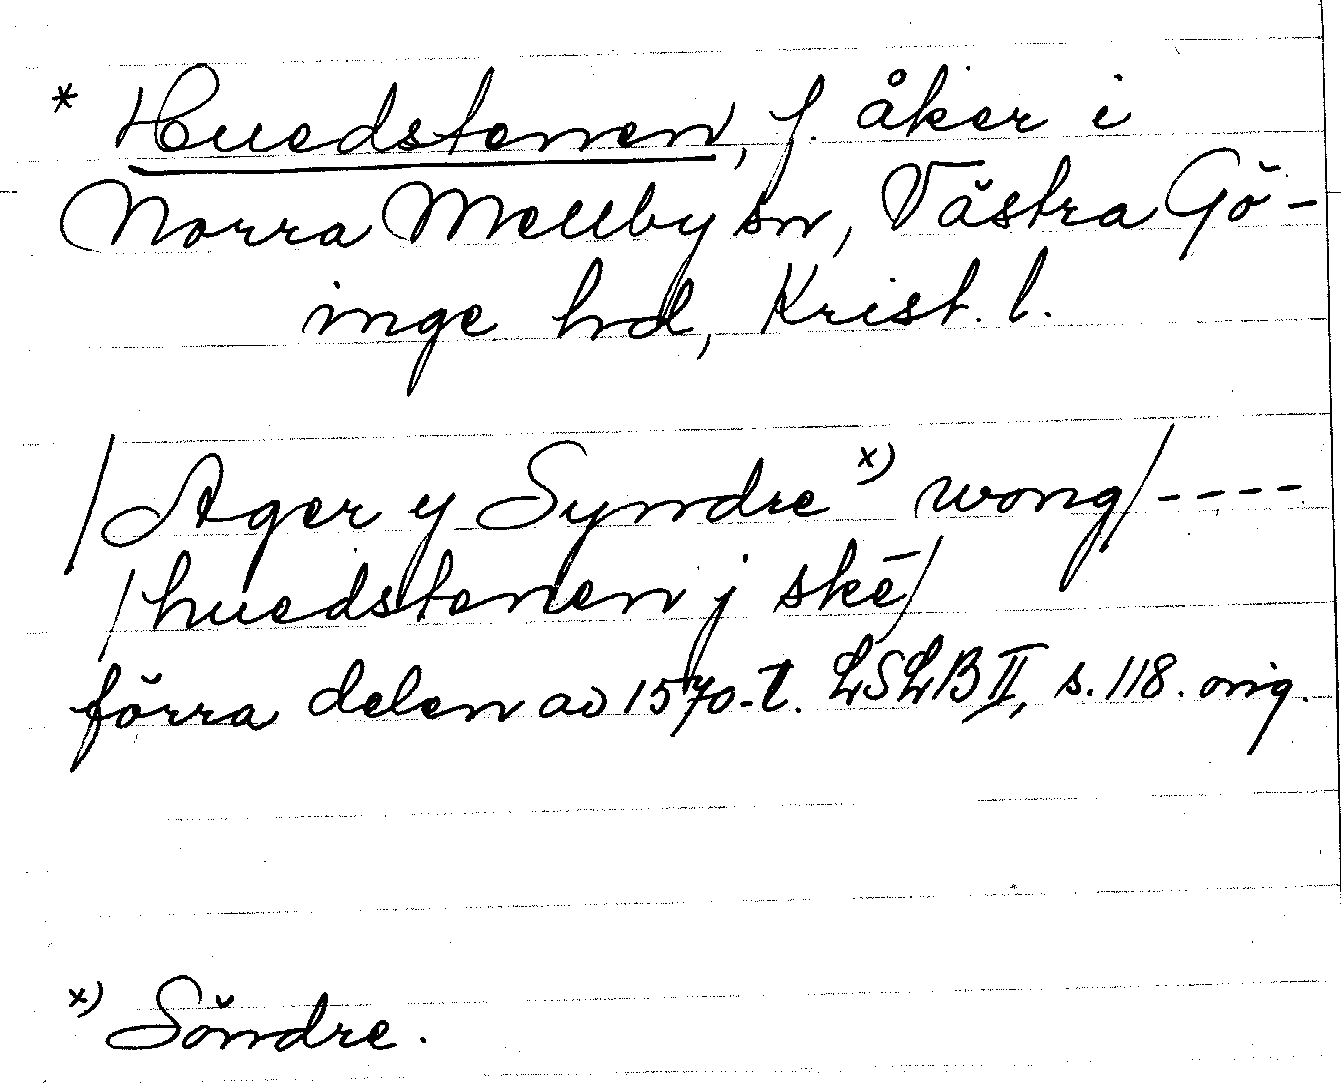 * Huedstenen, f. åker i
Norra Mellby sn, Västra Gö-
inge hd, Krist. l.
/Ager y Syndre x) wong/ ----
/huedstenen j skē/
förra delen av 1570-t. LSLB II, s. 118. orig.
x) Söndre.